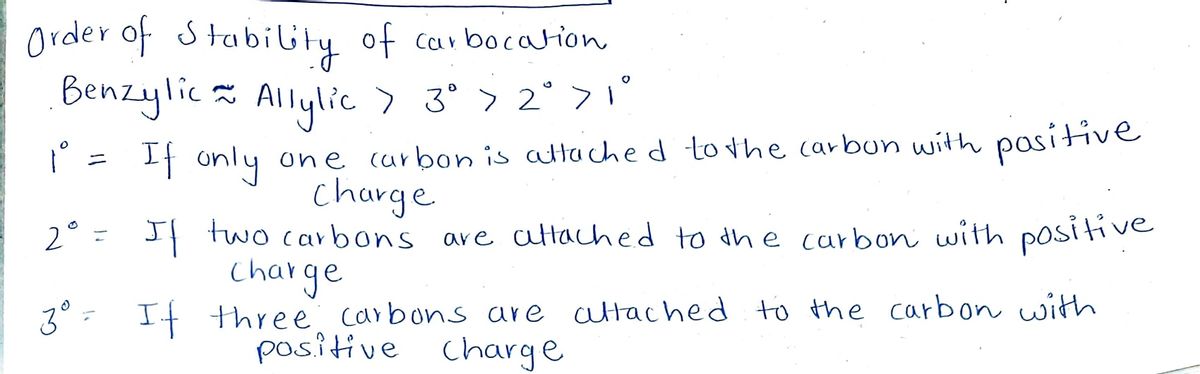 Order of Stability of carbocation
Benzylic ≈ Allylic > 3° > 2° > 1°
1° = If only one carbon is attached to the carbon with positive
charge
2° = If two carbons are attached to the carbon with positive
charge
3° = If three carbons are attached to the carbon with
positive charge